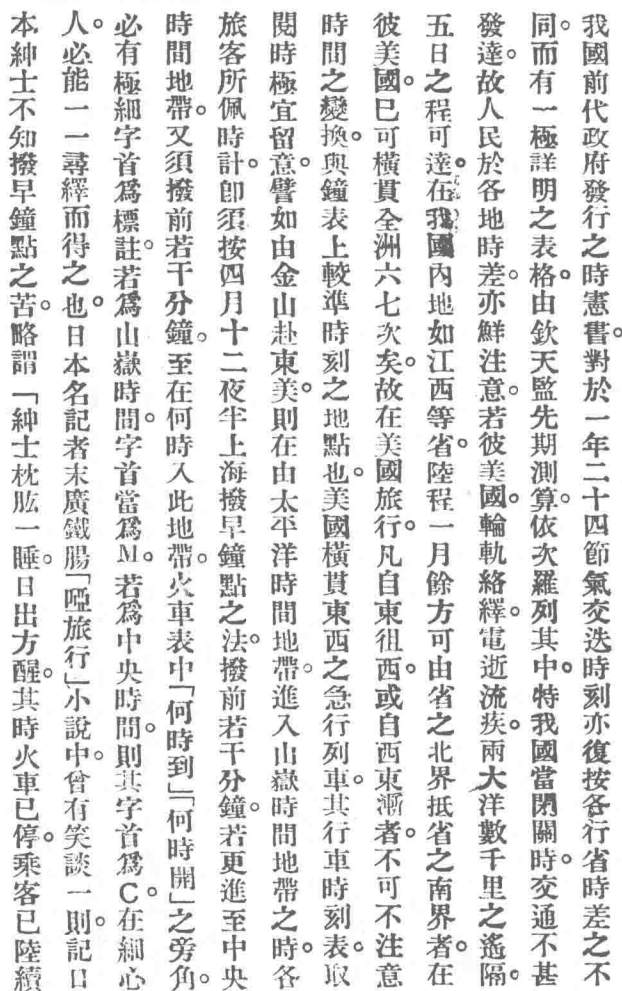 我國前代政府發行之時憲書。對於一年二十四節氣交迭時刻亦復按各行省時差之不
同。而有一極詳明之表格。由欽天監先期測算。依次羅列其中。特我國當閉關時。交通不甚
發達。故人民於各地時差。亦鮮注意。若彼美國。輪軌絡繹。電逝流疾。兩大洋數千里之遙隔。
五日之程可達。在我國內地如江西等省。陸程一月餘方可由省之北界抵省之南界者。在
彼美國。已可橫貫全洲六七次矣。故在美國旅行。凡自東徂西。或自西東漸者。不可不注意
時間之變換。與鐘表上較準時刻之地點也。美國橫貫東西之急行列車。其行車時刻表。取
閱時極宜留意。譬如由金山赴東美。則在由太平洋時間地帶。進入山嶽時間地帶之時。各
旅客所佩時計。卽須按四月十二夜半上海撥早鐘點之法。撥前若干分鐘。若更進至中央
時間地帶。又須撥前若干分鐘。至在何時入此地帶。火車表中「何時到」「何時開」之旁角。
必有極細字首爲標註。若爲山嶽時間。字首當爲M。若爲中央時間。則其字首爲C。在細心
人。必能一一尋繹而得之也。日本名記者末廣鐵腸「啞旅行」小說中。曾有笑談一則。記日
本紳士不知撥早鐘點之苦。略謂「紳士枕肱一睡。日出方醒。其時火車已停。乘客已陸續